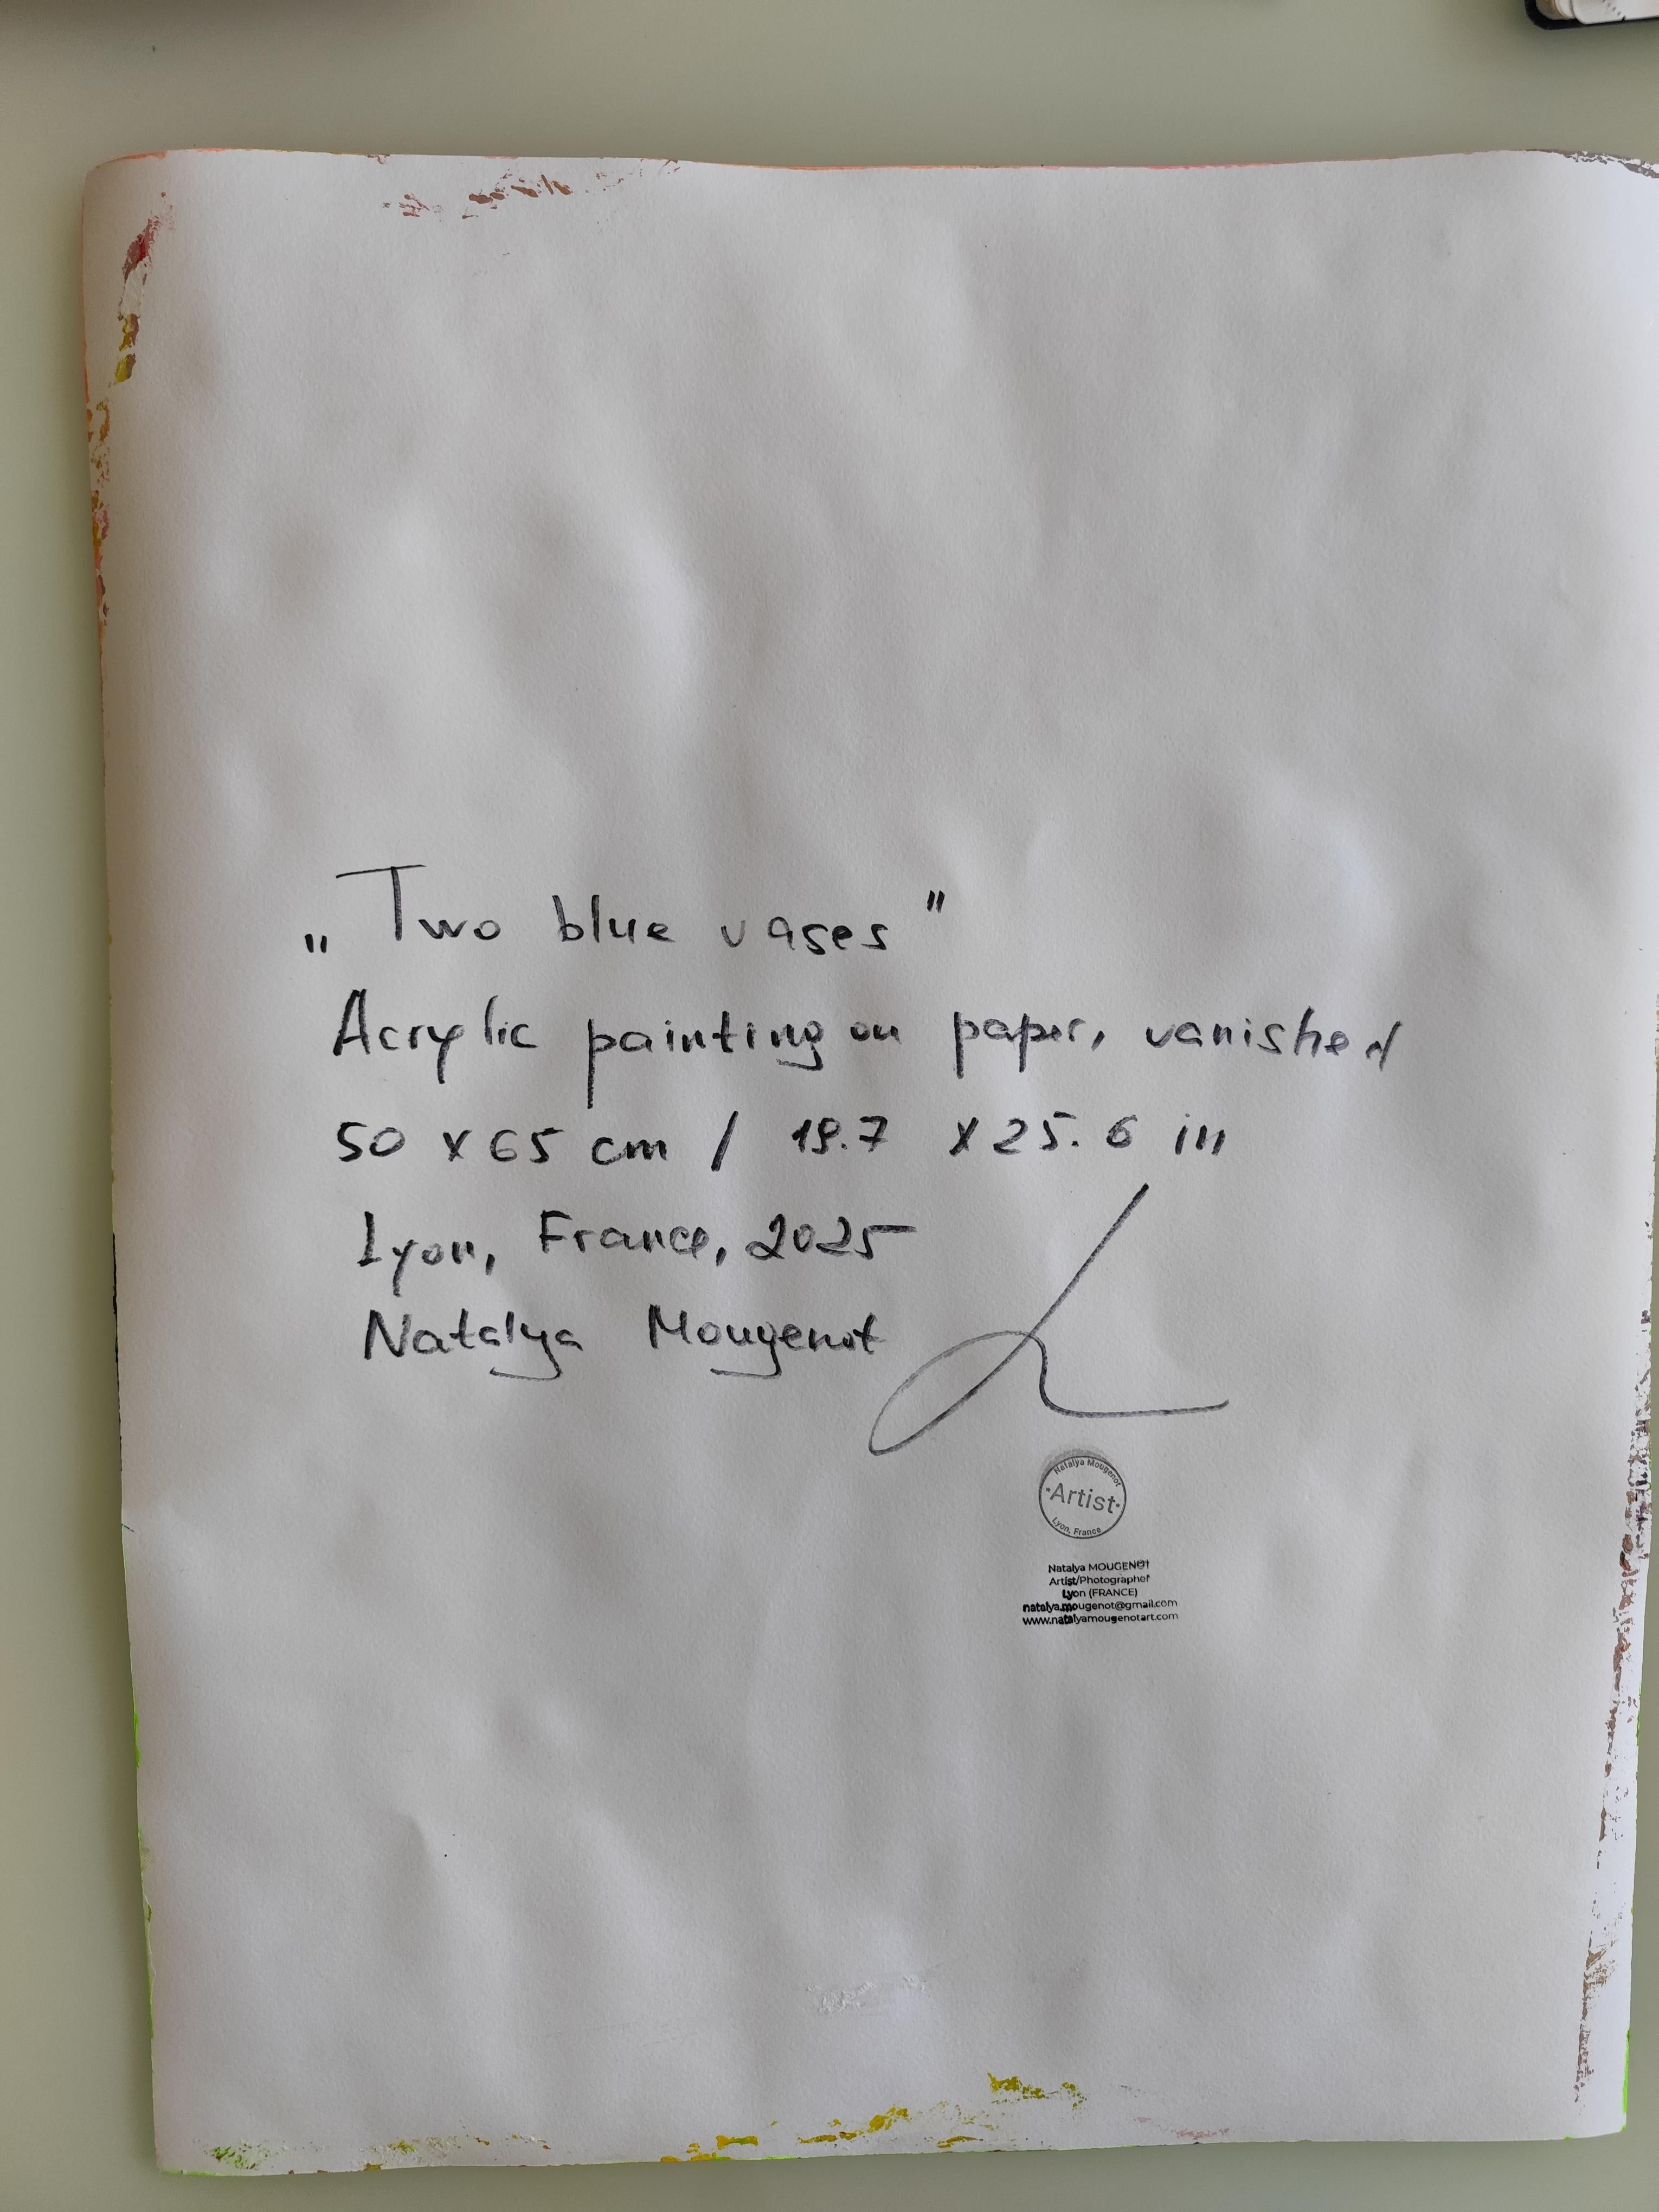 „Two blue vases"
Acrylic painting on paper, vanished
50 x 65 cm / 19.7 x 25.6 in
Lyon, France, 2025
Natalya Mougenot
Natalya Mougenot
·Artist·
Lyon, France
Natalya MOUGENOT
Artist/Photographer
Lyon (FRANCE)
natalya.mougenot@gmail.com
www.natalyamougenotart.com